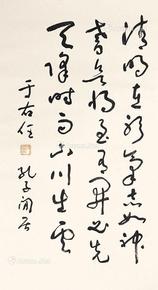 清明在躬氣志如神
嗜欲將至有開必先
天降時雨山川生雲
孔子閒居
于右任